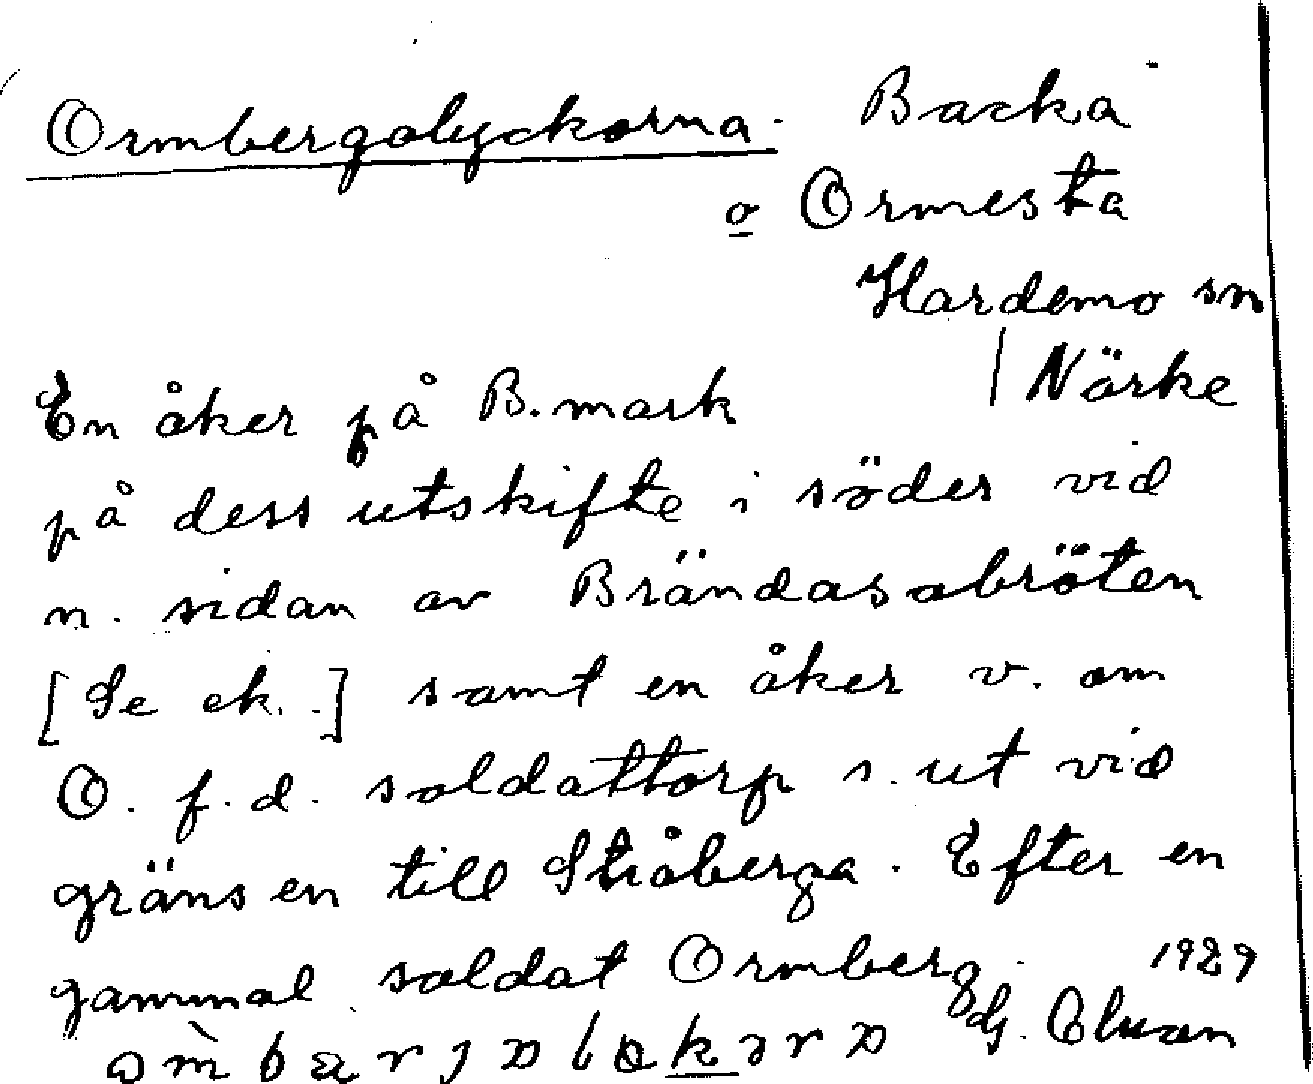 Ormbergalyckorna. Backa
o Ormesta
Hardemo sn
Närke
En åker på B. mark
på dess utskifte i söder vid
n. sidan av Brändasabröten
[Se ek. .] samt en åker v. om
O. f. d. soldattorp s. ut vid
gränsen till Stråberga. Efter en
gammal soldat Ormberg.
1929
G.